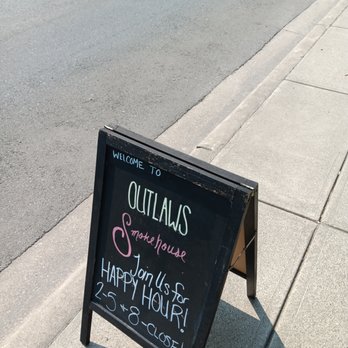 WELCOME TO
OUTLAWS
Smokehouse
Join Us for
HAPPY HOUR!
2-5 + 8-CLOSE!